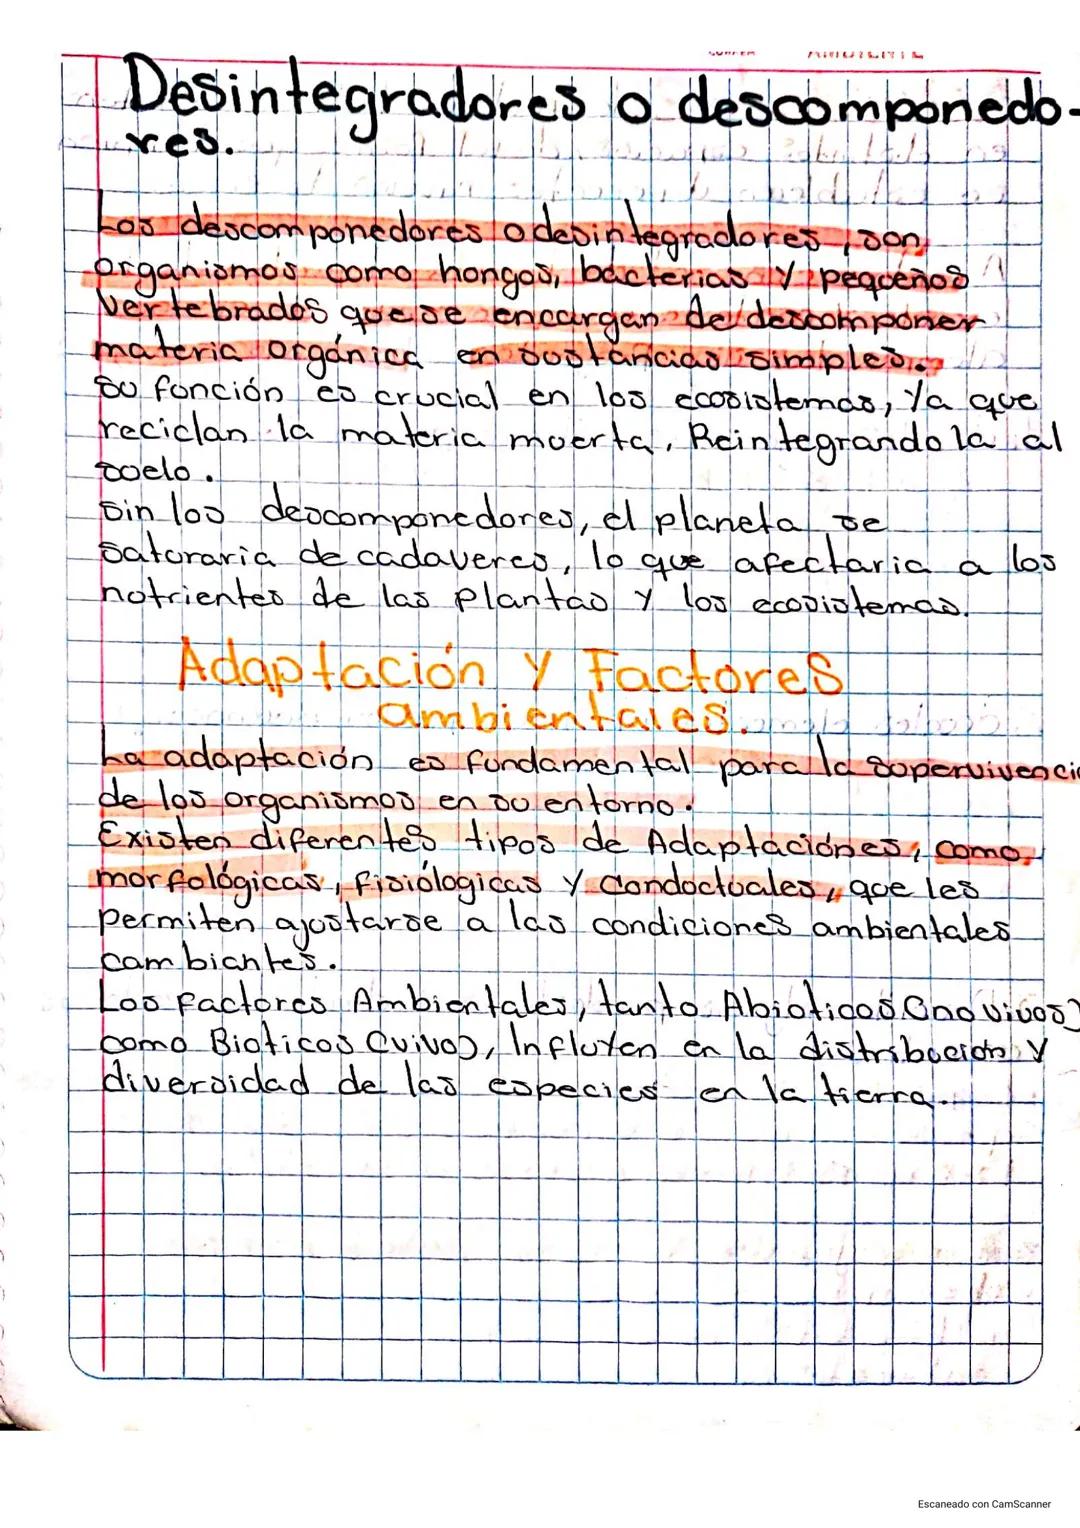 AMBIENTE
Desintegradores o descomponedo-
res.
Los descomponedores o desintegradores, son
organismos como hongos, bacterias y pequeños
vertebrados que se encargan de descomponer
materia orgánica en sustancias simples.
su función es crucial en los ecosistemas, Ya que
reciclan la materia muerta, Reintegrandola al
suelo.
sin los descomponedores, el planeta se
saturaria de cadaveres, lo que afectaria a los
nutrientes de las plantas y los ecosistemas.
Adaptación y Factores
ambientales.
La adaptación es fundamental para la supervivencia
de los organismos en su entorno.
Existen diferentes tipos de Adaptaciónes, como
morfológicas, Fisiólogicas y Conductuales, que les
permiten ajustarse a las condiciones ambientales
cambiantes.
Los factores Ambientales, tanto Abioticos (no vivos)
como Bioticos (vivo), Influyen en la distribución y
diversidad de las especies en la tierra.
Escaneado con CamScanner